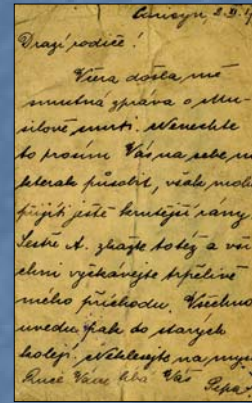 2. XI.
Drazí rodiče!
Včera došla mě
smutná zpráva o Mu-
silově smrti. Nenechte
to prosím Vás na sebe
působit, však
přijíti ještě krutější rány
Sestře A. vzkažte totéž a vši
chni vyčkávejte trpělivě
mého příchodu. Všechno
uvedu pak do starých
kolejí. Neklesejte na mysli
Ruce Vám líbá Váš
Pepa